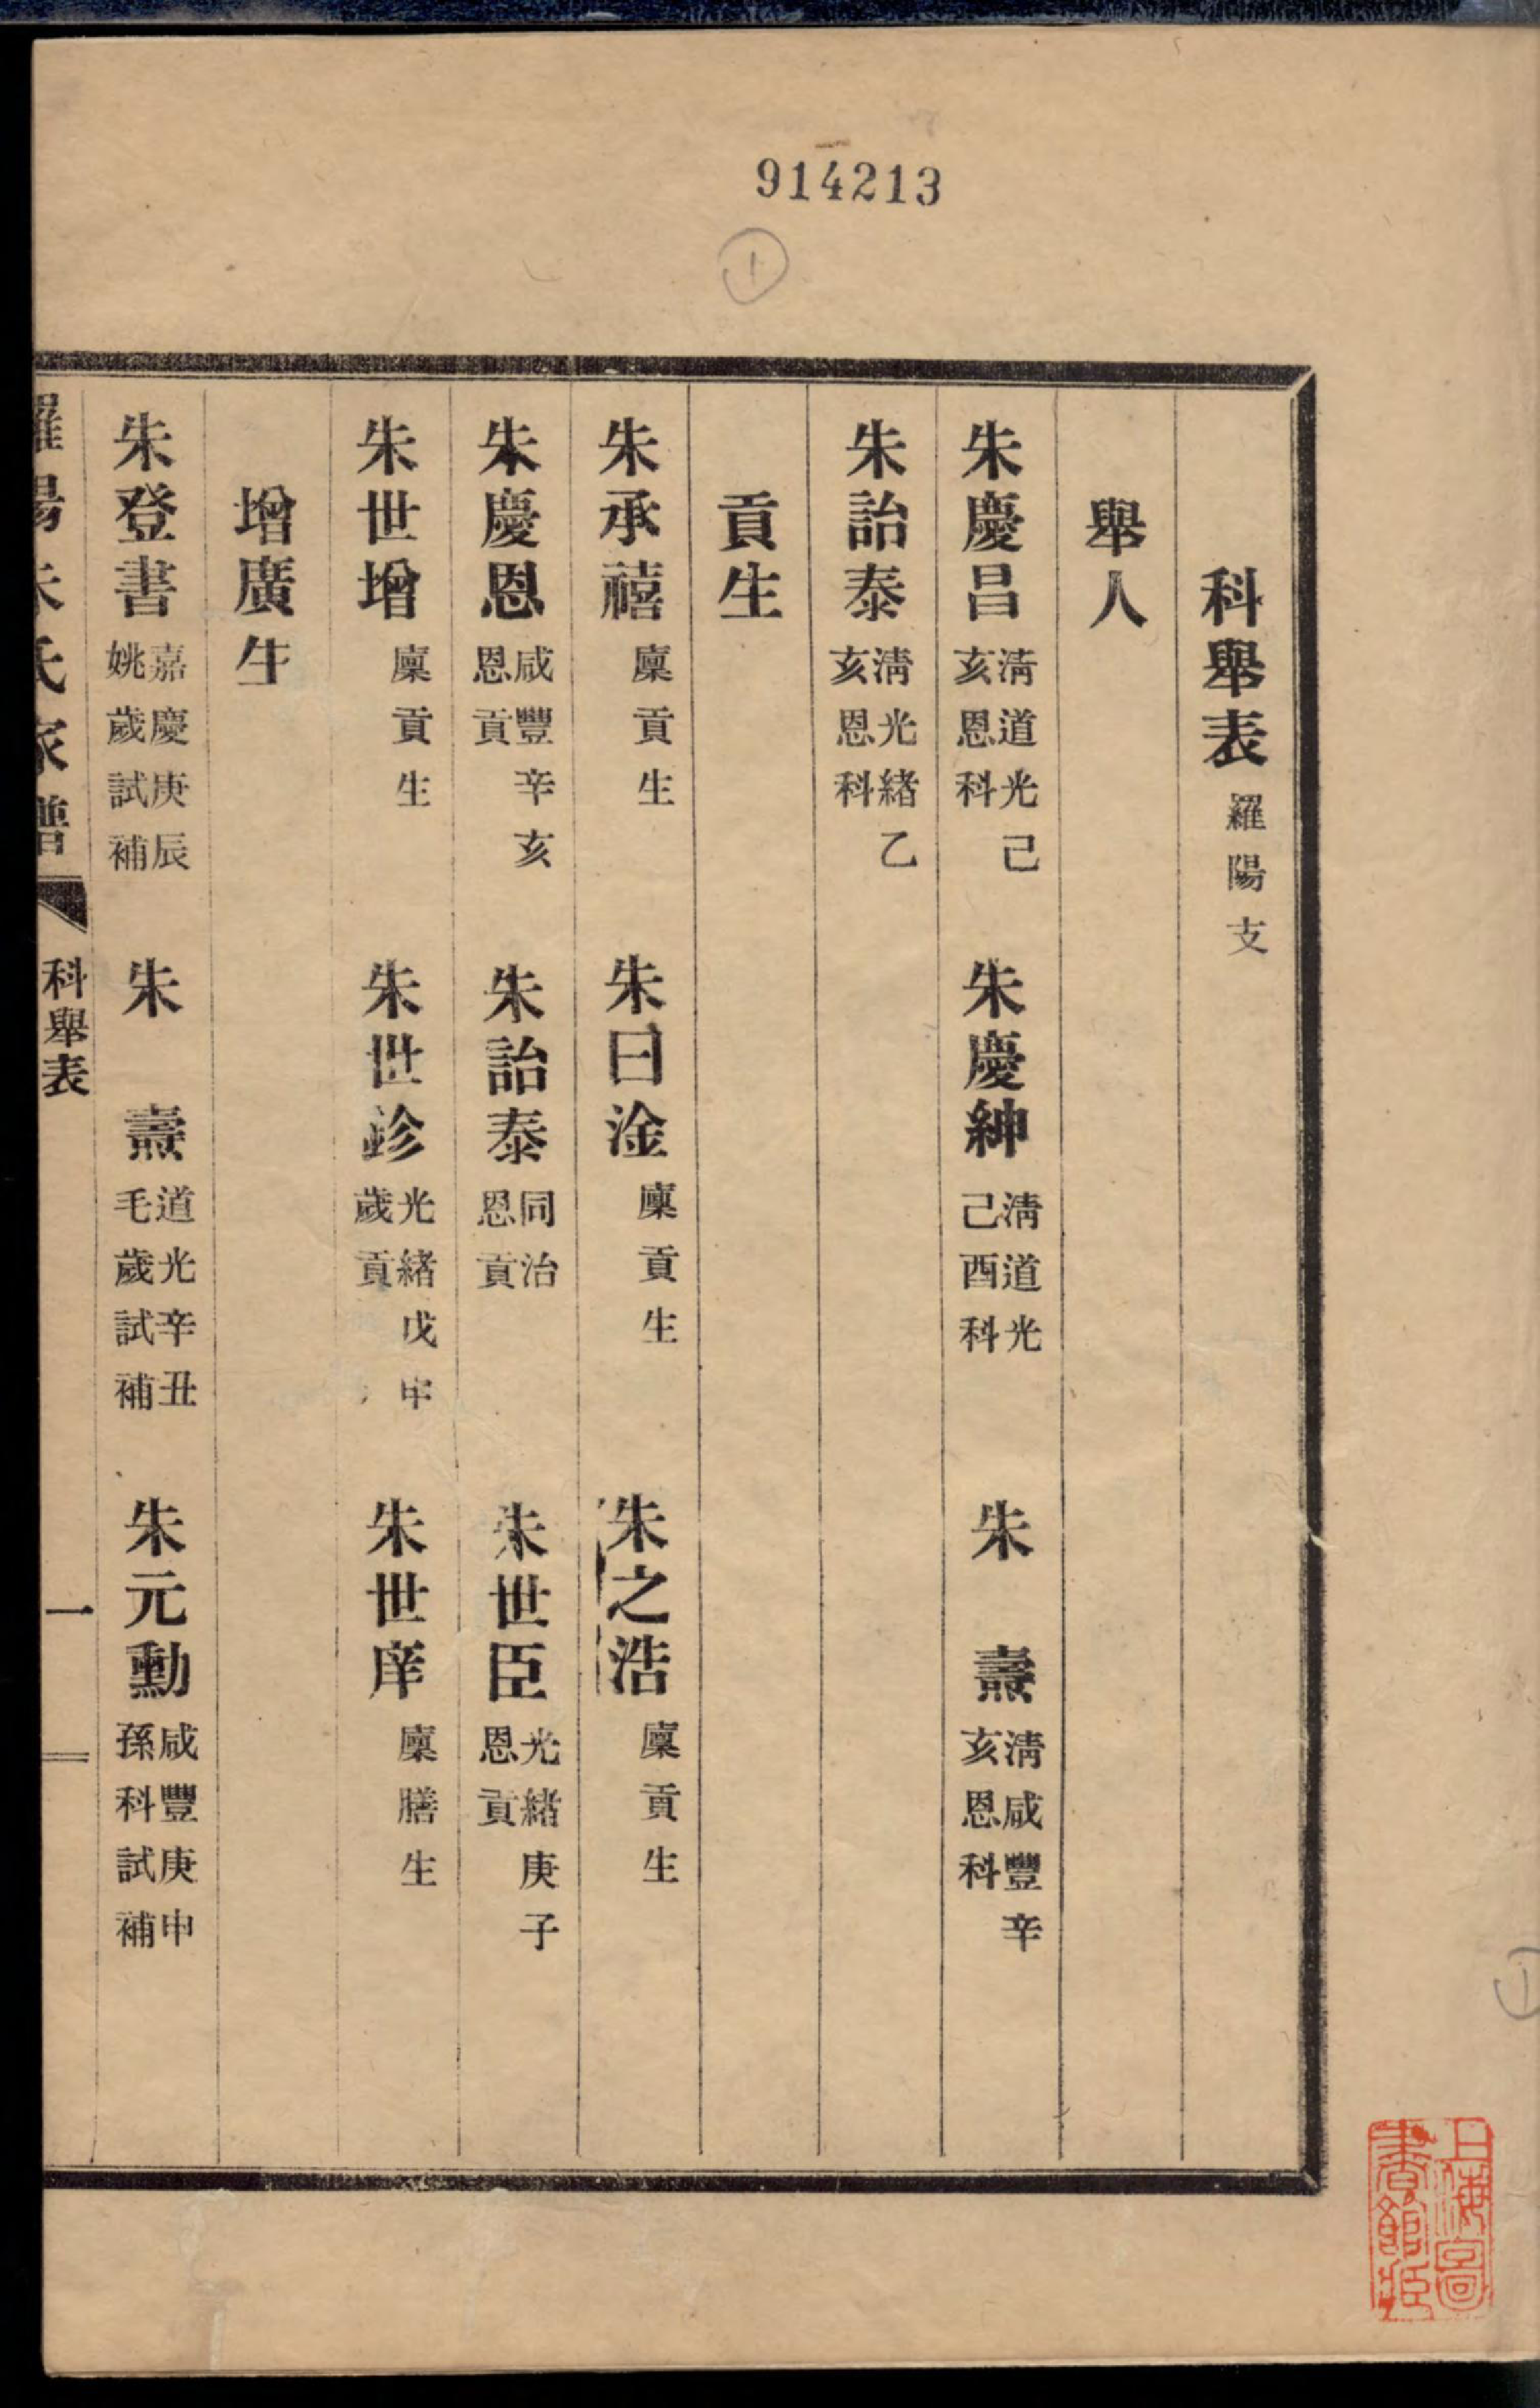 914213
1
科舉表 羅陽支
舉人
朱慶昌 淸道光己亥恩科 朱慶紳 淸道光己酉科 朱燾 淸咸豐辛亥恩科
朱詒泰 淸光緒乙亥恩科
貢生
朱承禧 廩貢生 朱曰淦 廩貢生 朱之浩 廩貢生
朱慶恩 咸豐辛亥恩貢 朱詒泰 同治恩貢 朱世臣 光緒庚子恩貢
朱世增 廩貢生 朱世鉁 光緒戊申歲貢 朱世庠 廩膳生
增廣生
朱登書 嘉慶庚辰姚歲試補 朱燾 道光辛丑毛歲試補 朱元勳 咸豐庚申孫科試補
羅陽朱氏家譜 科舉表 一
上海圖書館藏